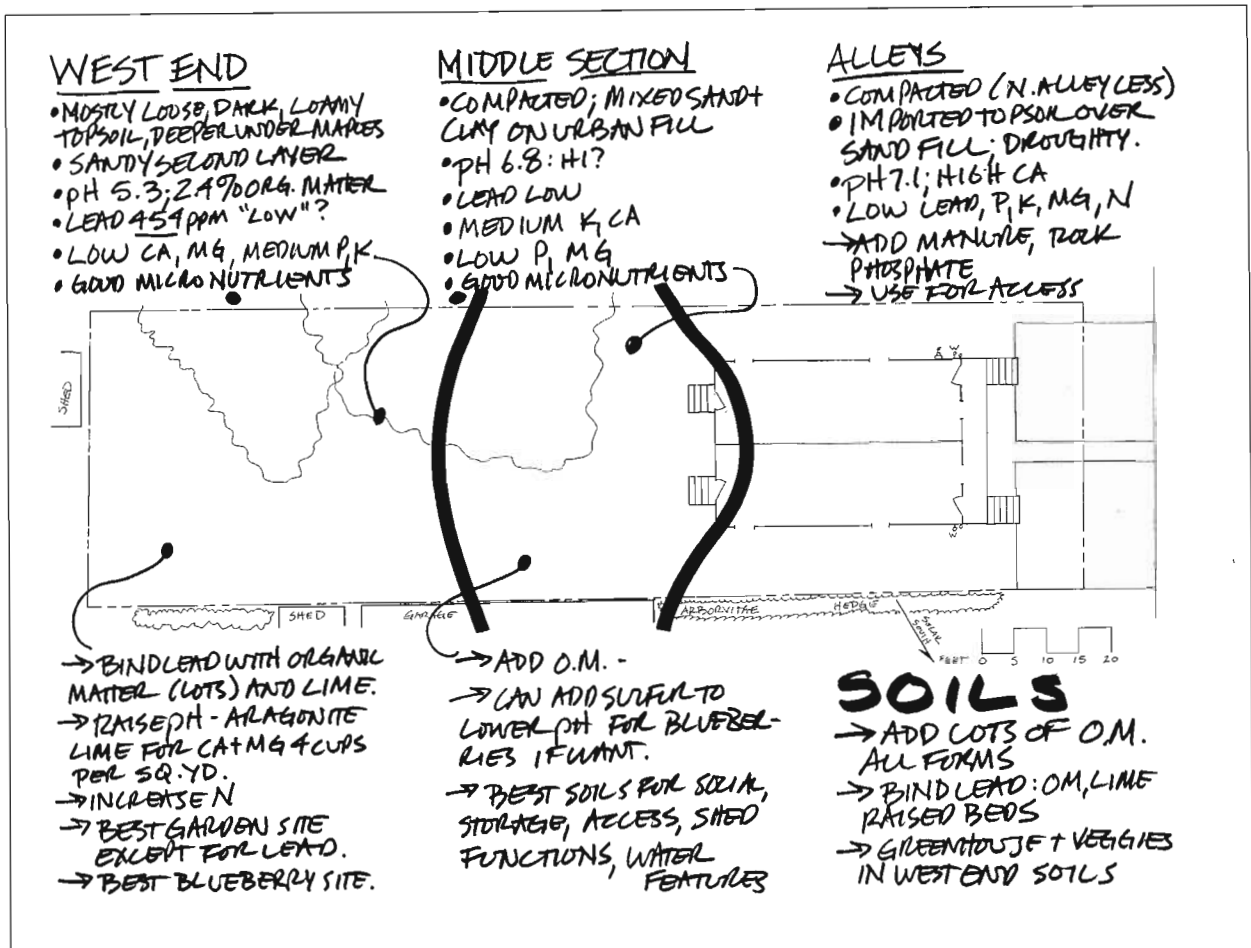 WEST END
• MOSTLY LOOSE, DARK, LOAMY
TOPSOIL, DEEPER UNDER MAPLES
• SANDY SECOND LAYER
• pH 5.3; 2.4% ORG. MATTER
• LEAD 454 ppm "LOW"?
• LOW CA, MG, MEDIUM P, K
• GOOD MICRONUTRIENTS
MIDDLE SECTION
• COMPACTED; MIXED SAND +
CLAY ON URBAN FILL
• pH 6.8: HI?
• LEAD LOW
• MEDIUM K, CA
• LOW P, MG
• GOOD MICRONUTRIENTS
ALLEYS
• COMPACTED (N. ALLEY LESS)
• IMPORTED TOPSOIL OVER
SAND FILL; DROUGHTY.
• pH 7.1; HIGH CA
• LOW LEAD, P, K, MG, N
→ ADD MANURE, ROCK
PHOSPHATE
→ USE FOR ACCESS
SHED
W
W
SHED
GARAGE
ARBORVITAE HEDGE
SOLAR
SOUTH
FEET 0 5 10 15 20
→ BIND LEAD WITH ORGANIC
MATTER (LOTS) AND LIME.
→ RAISE pH - ARAGONITE
LIME FOR CA + MG 4 CUPS
PER SQ. YD.
→ INCREASE N
→ BEST GARDEN SITE
EXCEPT FOR LEAD.
→ BEST BLUEBERRY SITE.
→ ADD O.M. -
→ CAN ADD SULFUR TO
LOWER pH FOR BLUEBER-
RIES IF WANT.
→ BEST SOILS FOR SOCIAL,
STORAGE, ACCESS, SHED
FUNCTIONS, WATER
FEATURES
SOILS
→ ADD LOTS OF O.M.
ALL FORMS
→ BIND LEAD: OM, LIME
RAISED BEDS
→ GREENHOUSE + VEGGIES
IN WEST END SOILS